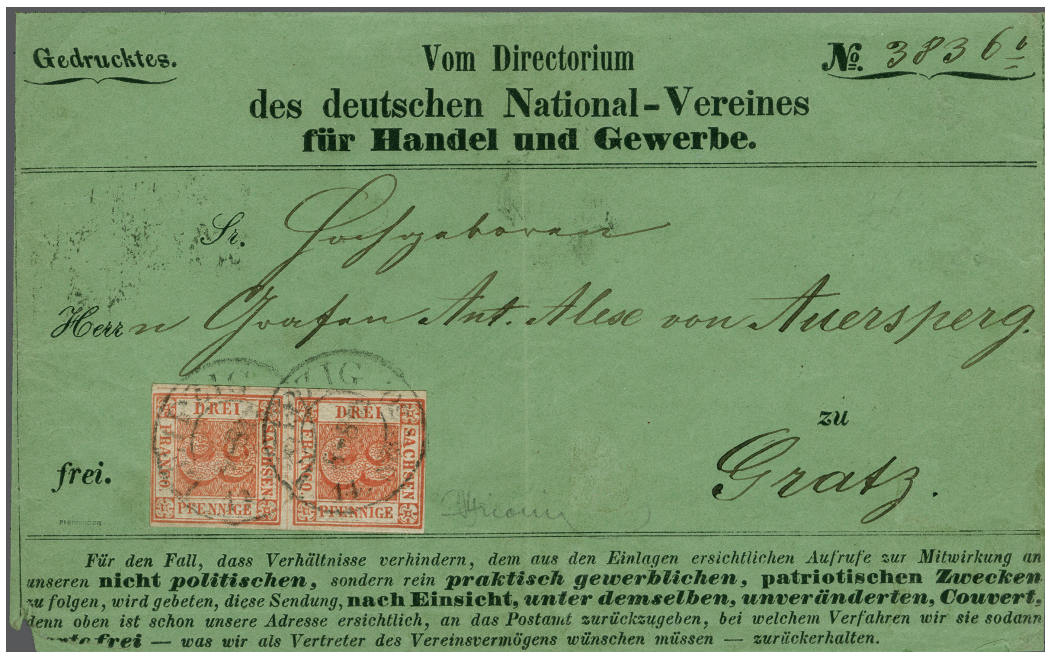 Gedrucktes.
Vom Directorium
No. 3836b
des deutschen National-Vereines
für Handel und Gewerbe.
Sr. Hochgeboren
Herrn Grafen Ant. Alex von Auersperg.
DREI DREI
FRANCO SACHSEN FRANCO SACHSEN
PFENNIGE PFENNIGE
LEIPZIG
zu
frei. Gratz.
Für den Fall, dass Verhältnisse verhindern, dem aus den Einlagen ersichtlichen Aufrufe zur Mitwirkung an
unseren nicht politischen, sondern rein praktisch gewerblichen, patriotischen Zwecken
zu folgen, wird gebeten, diese Sendung, nach Einsicht, unter demselben, unveränderten, Couvert,
denn oben ist schon unsere Adresse ersichtlich, an das Postamt zurückzugeben, bei welchem Verfahren wir sie sodann
portofrei — was wir als Vertreter des Vereinsvermögens wünschen müssen — zurückerhalten.